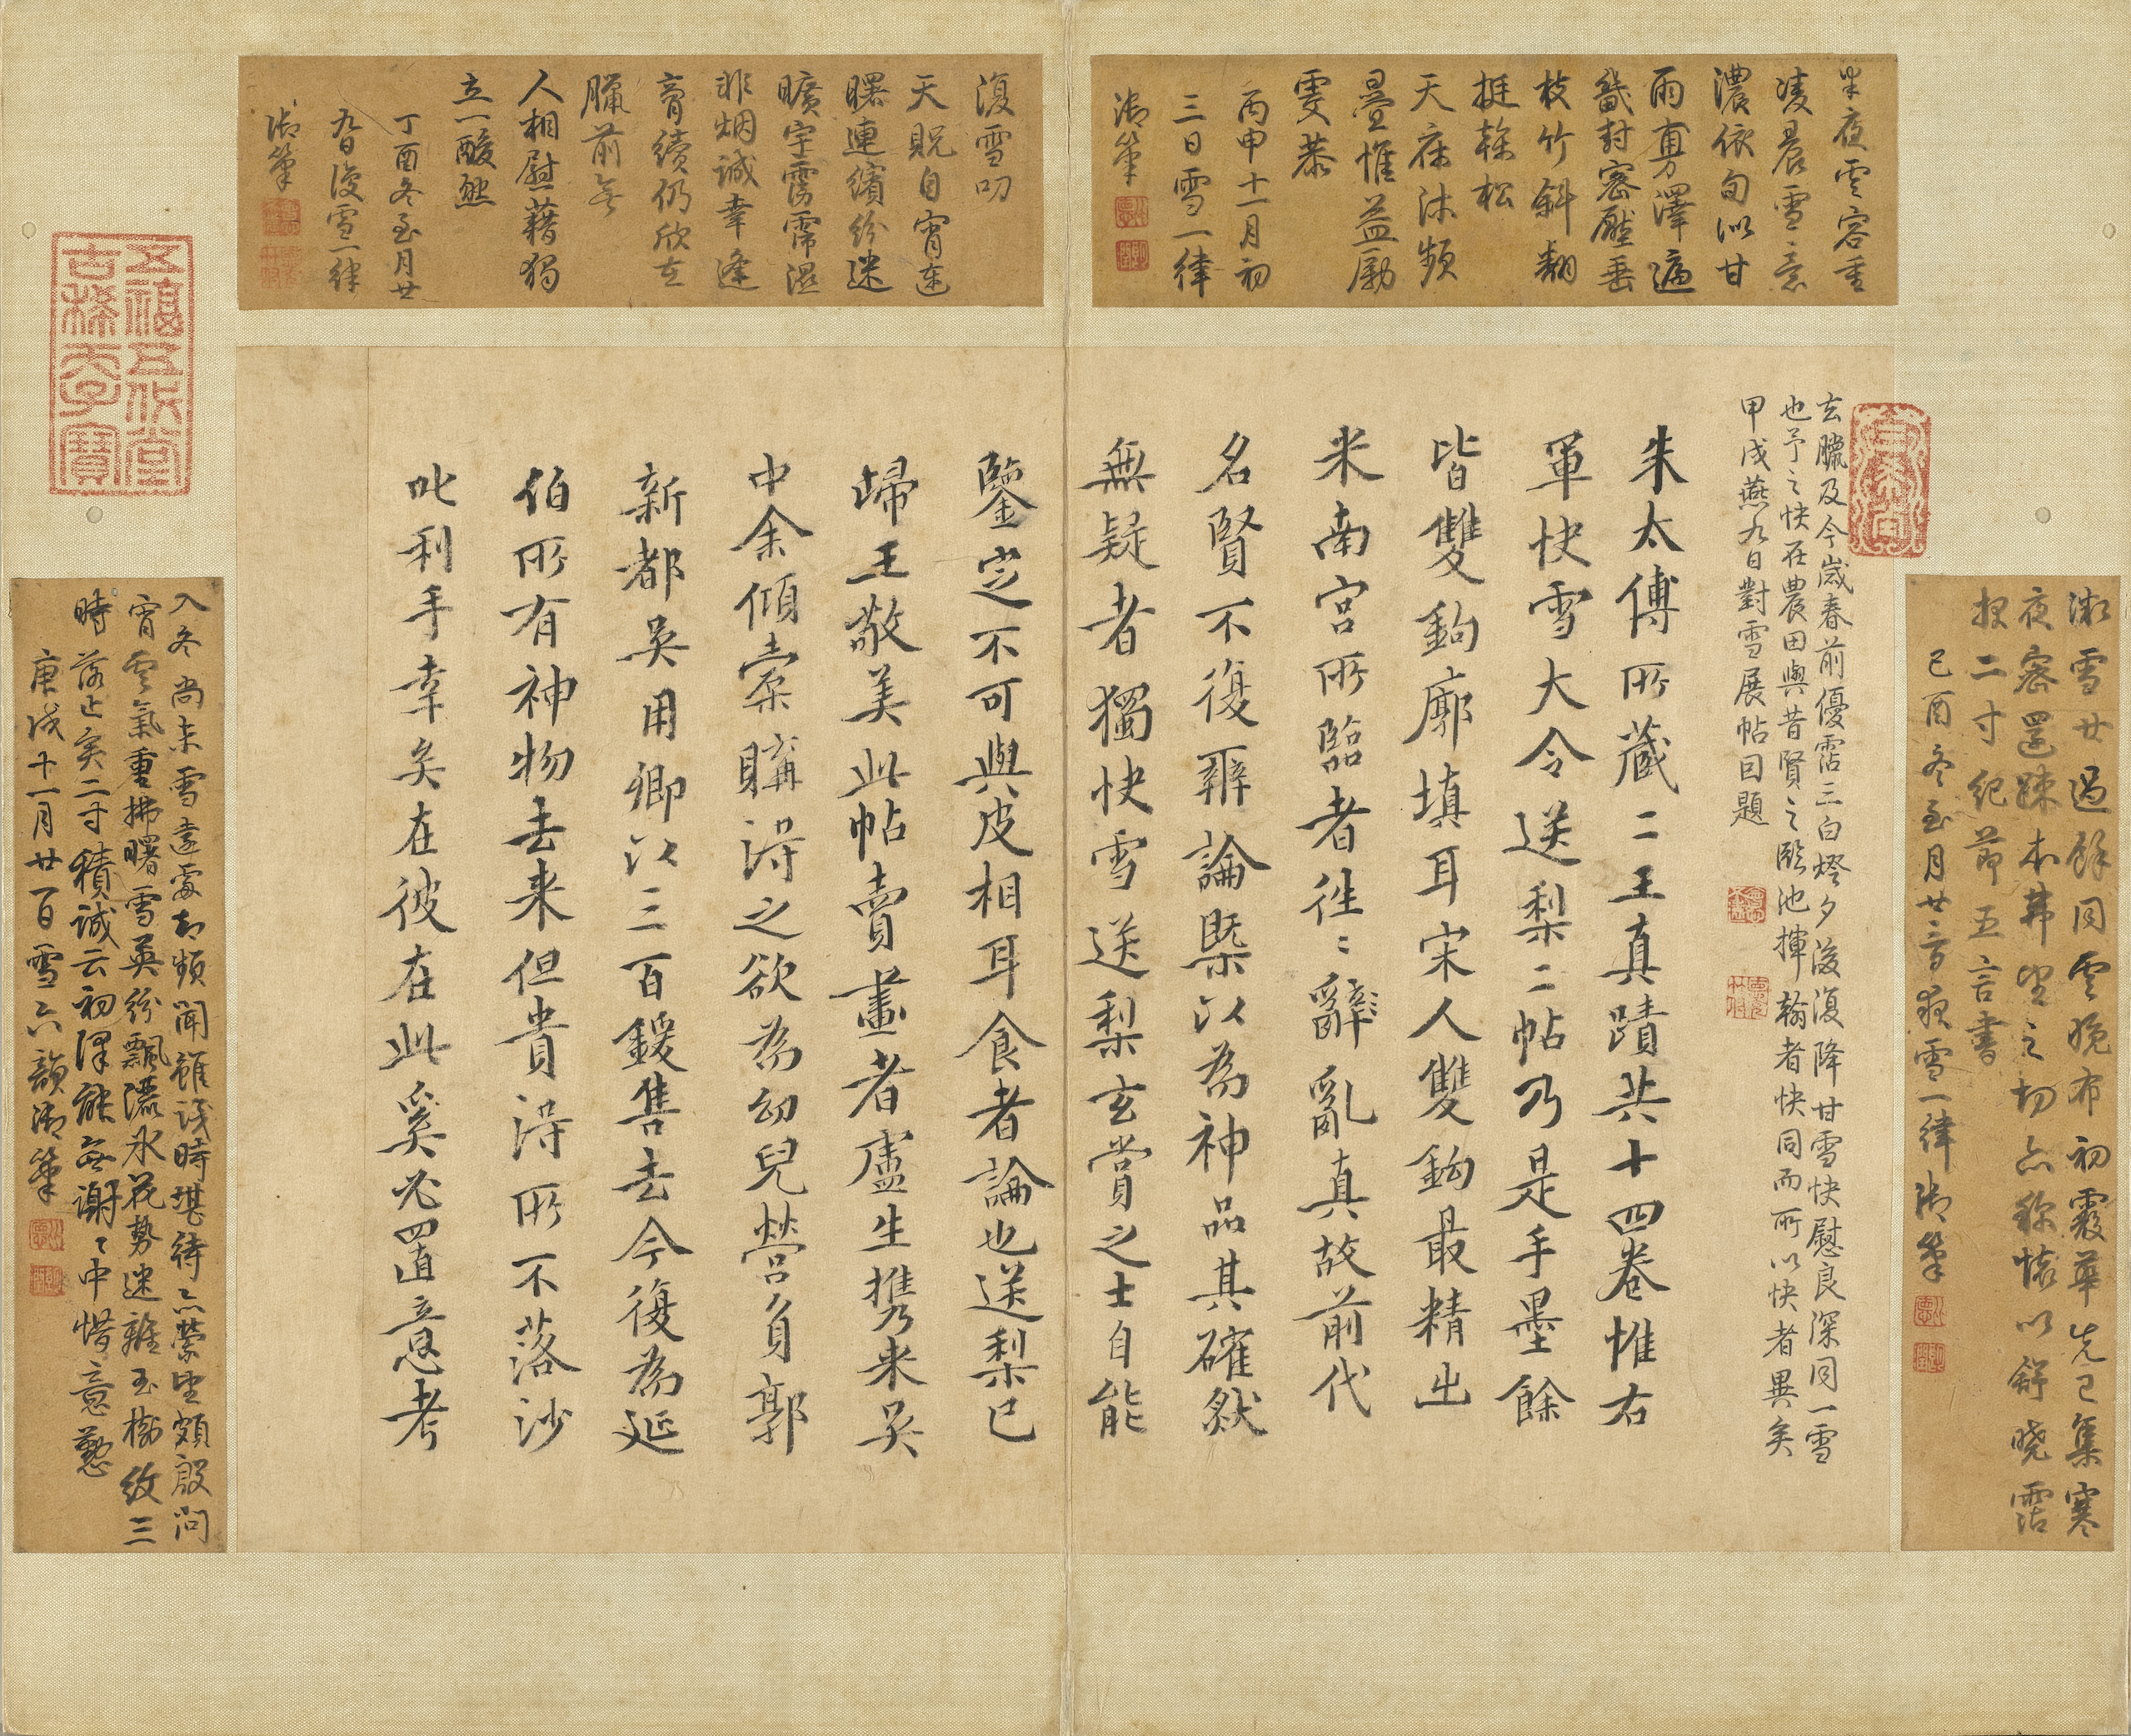 半夜雲容重
凌晨雪意
濃依旬似甘
雨夐澤遍
畿封密壓垂
枝竹斜翻
挺榦松
天庥沐頻
疊惟益勵
雯恭
丙申十一月初
三日雪一律
御筆
復雪叩
天貺自宵達
曙連繽紛迷
曠宇霶霈濕
非烟誠幸逢
膏續仍欣在
臘前無
人相慰藉獨
立一酸然
丁酉冬至月廿
九日復雪一律
御筆
澍雪廿過餘同雲晚布初霰華先已集寒
夜密還踈本弗望之切亦稱懷以舒曉霑
報二寸紀節五言書
己酉冬至月廿三首夜雪一律御筆
宜
五福五代堂
古稀天子寶
去臘及今歲春前優霑三白燈夕後復降甘雪快慰良深同一雪
也予之快在農田與昔賢之臨池揮翰者快同而所以快者異矣
甲戌燕九日對雪展帖因題
朱太傅所藏二王真蹟共十四卷惟右
軍快雪大令送梨二帖乃是手墨餘
皆雙鉤廓填耳宋人雙鉤最精出
米南宮所臨者往〻辭亂真故前代
名賢不復辨論槩以為神品其確然
無疑者獨快雪送梨玄賞之士自能
鑒定不可與皮相耳食者論也送梨已
歸王敬美此帖賣畫者盧生攜来吴
中余傾橐購淂之欲為幼兒營負郭
新都吴用卿以三百鍰售去今復為延
伯所有神物去来但貴淂所不落沙
叱利手幸矣在彼在此奚必置意考
入冬尚未雪遠處却頻聞雖識時堪待亦縈望頗殷問
宵雲氣重拂曙雪英紛飄瀁氷花勢迷離玉樹紋三
時落止矣二寸積誠云初澤能無謝〻中惜意懃
庚戌十一月廿一日雪六韻御筆